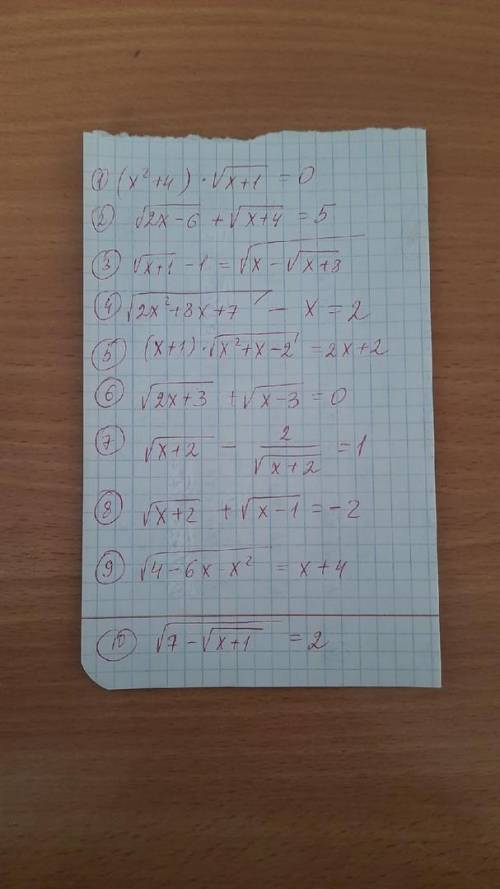 ① (x²+4) · √(x+1) = 0
② √(2x-6) + √(x+4) = 5
③ √(x+1) - 1 = √(x - √(x+8))
④ √(2x²+8x+7) - x = 2
⑤ (x+1) · √(x²+x-2) = 2x+2
⑥ √(2x+3) + √(x-3) = 0
⑦ √(x+2) - 2/√(x+2) = 1
⑧ √(x+2) + √(x-1) = -2
⑨ √(4-6x-x²) = x+4
⑩ √(7-√(x+1)) = 2